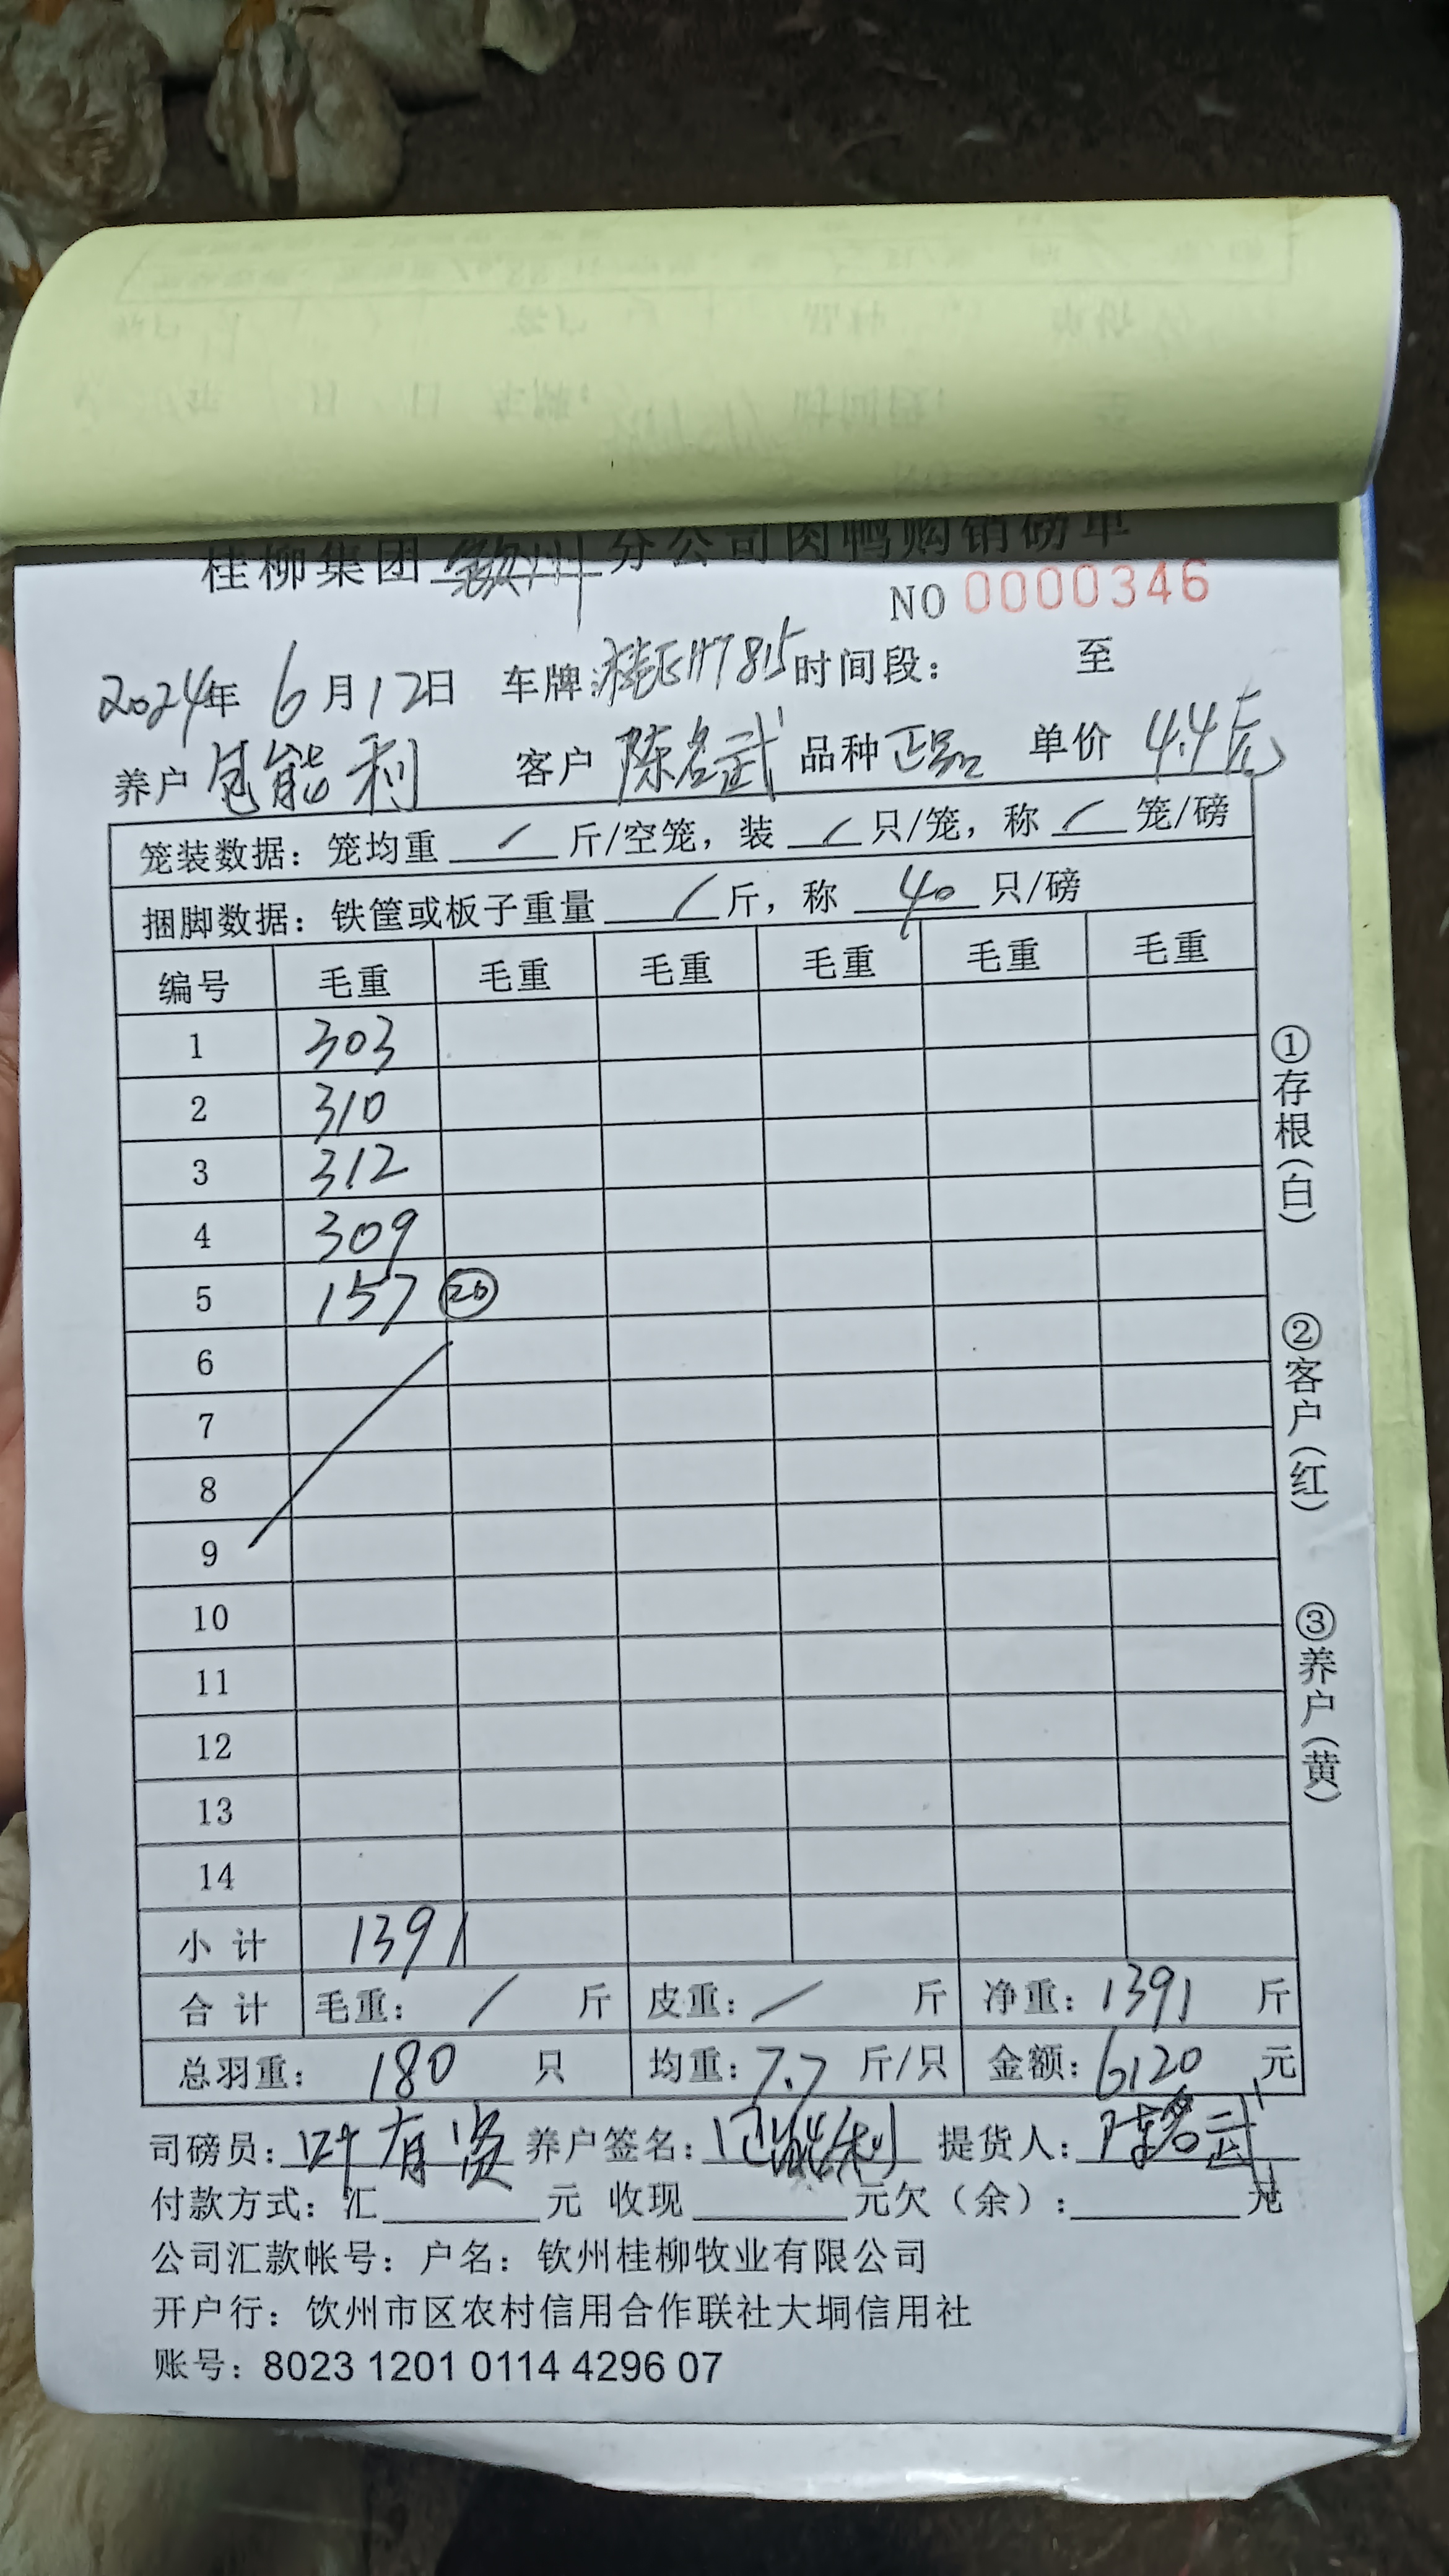 桂柳集团 钦州 分公司肉鸭购销磅单
NO 0000346
2024年 6月12日 车牌:桂EH7815 时间段: 至
养户 包能利 客户 陈名武 品种 正品 单价 4.4元
笼装数据: 笼均重 / 斤/空笼, 装 / 只/笼, 称 / 笼/磅
捆脚数据: 铁筐或板子重量 / 斤, 称 40 只/磅
编号 毛重 毛重 毛重 毛重 毛重 毛重
1 303
2 310
3 312
4 309
5 157 20
6
7
8
9
10
11
12
13
14
小计 1391
合计 毛重: / 斤 皮重: / 斤 净重: 1391 斤
总羽重: 180 只 均重: 7.7 斤/只 金额: 6120 元
司磅员: 叶有贤 养户签名: 包能利 提货人: 陈名武
付款方式: 汇 元 收现 元欠(余): 元
公司汇款帐号: 户名: 钦州桂柳牧业有限公司
开户行: 钦州市区农村信用合作联社大垌信用社
账号: 8023 1201 0114 4296 07
①存根(白)
②客户(红)
③养户(黄)